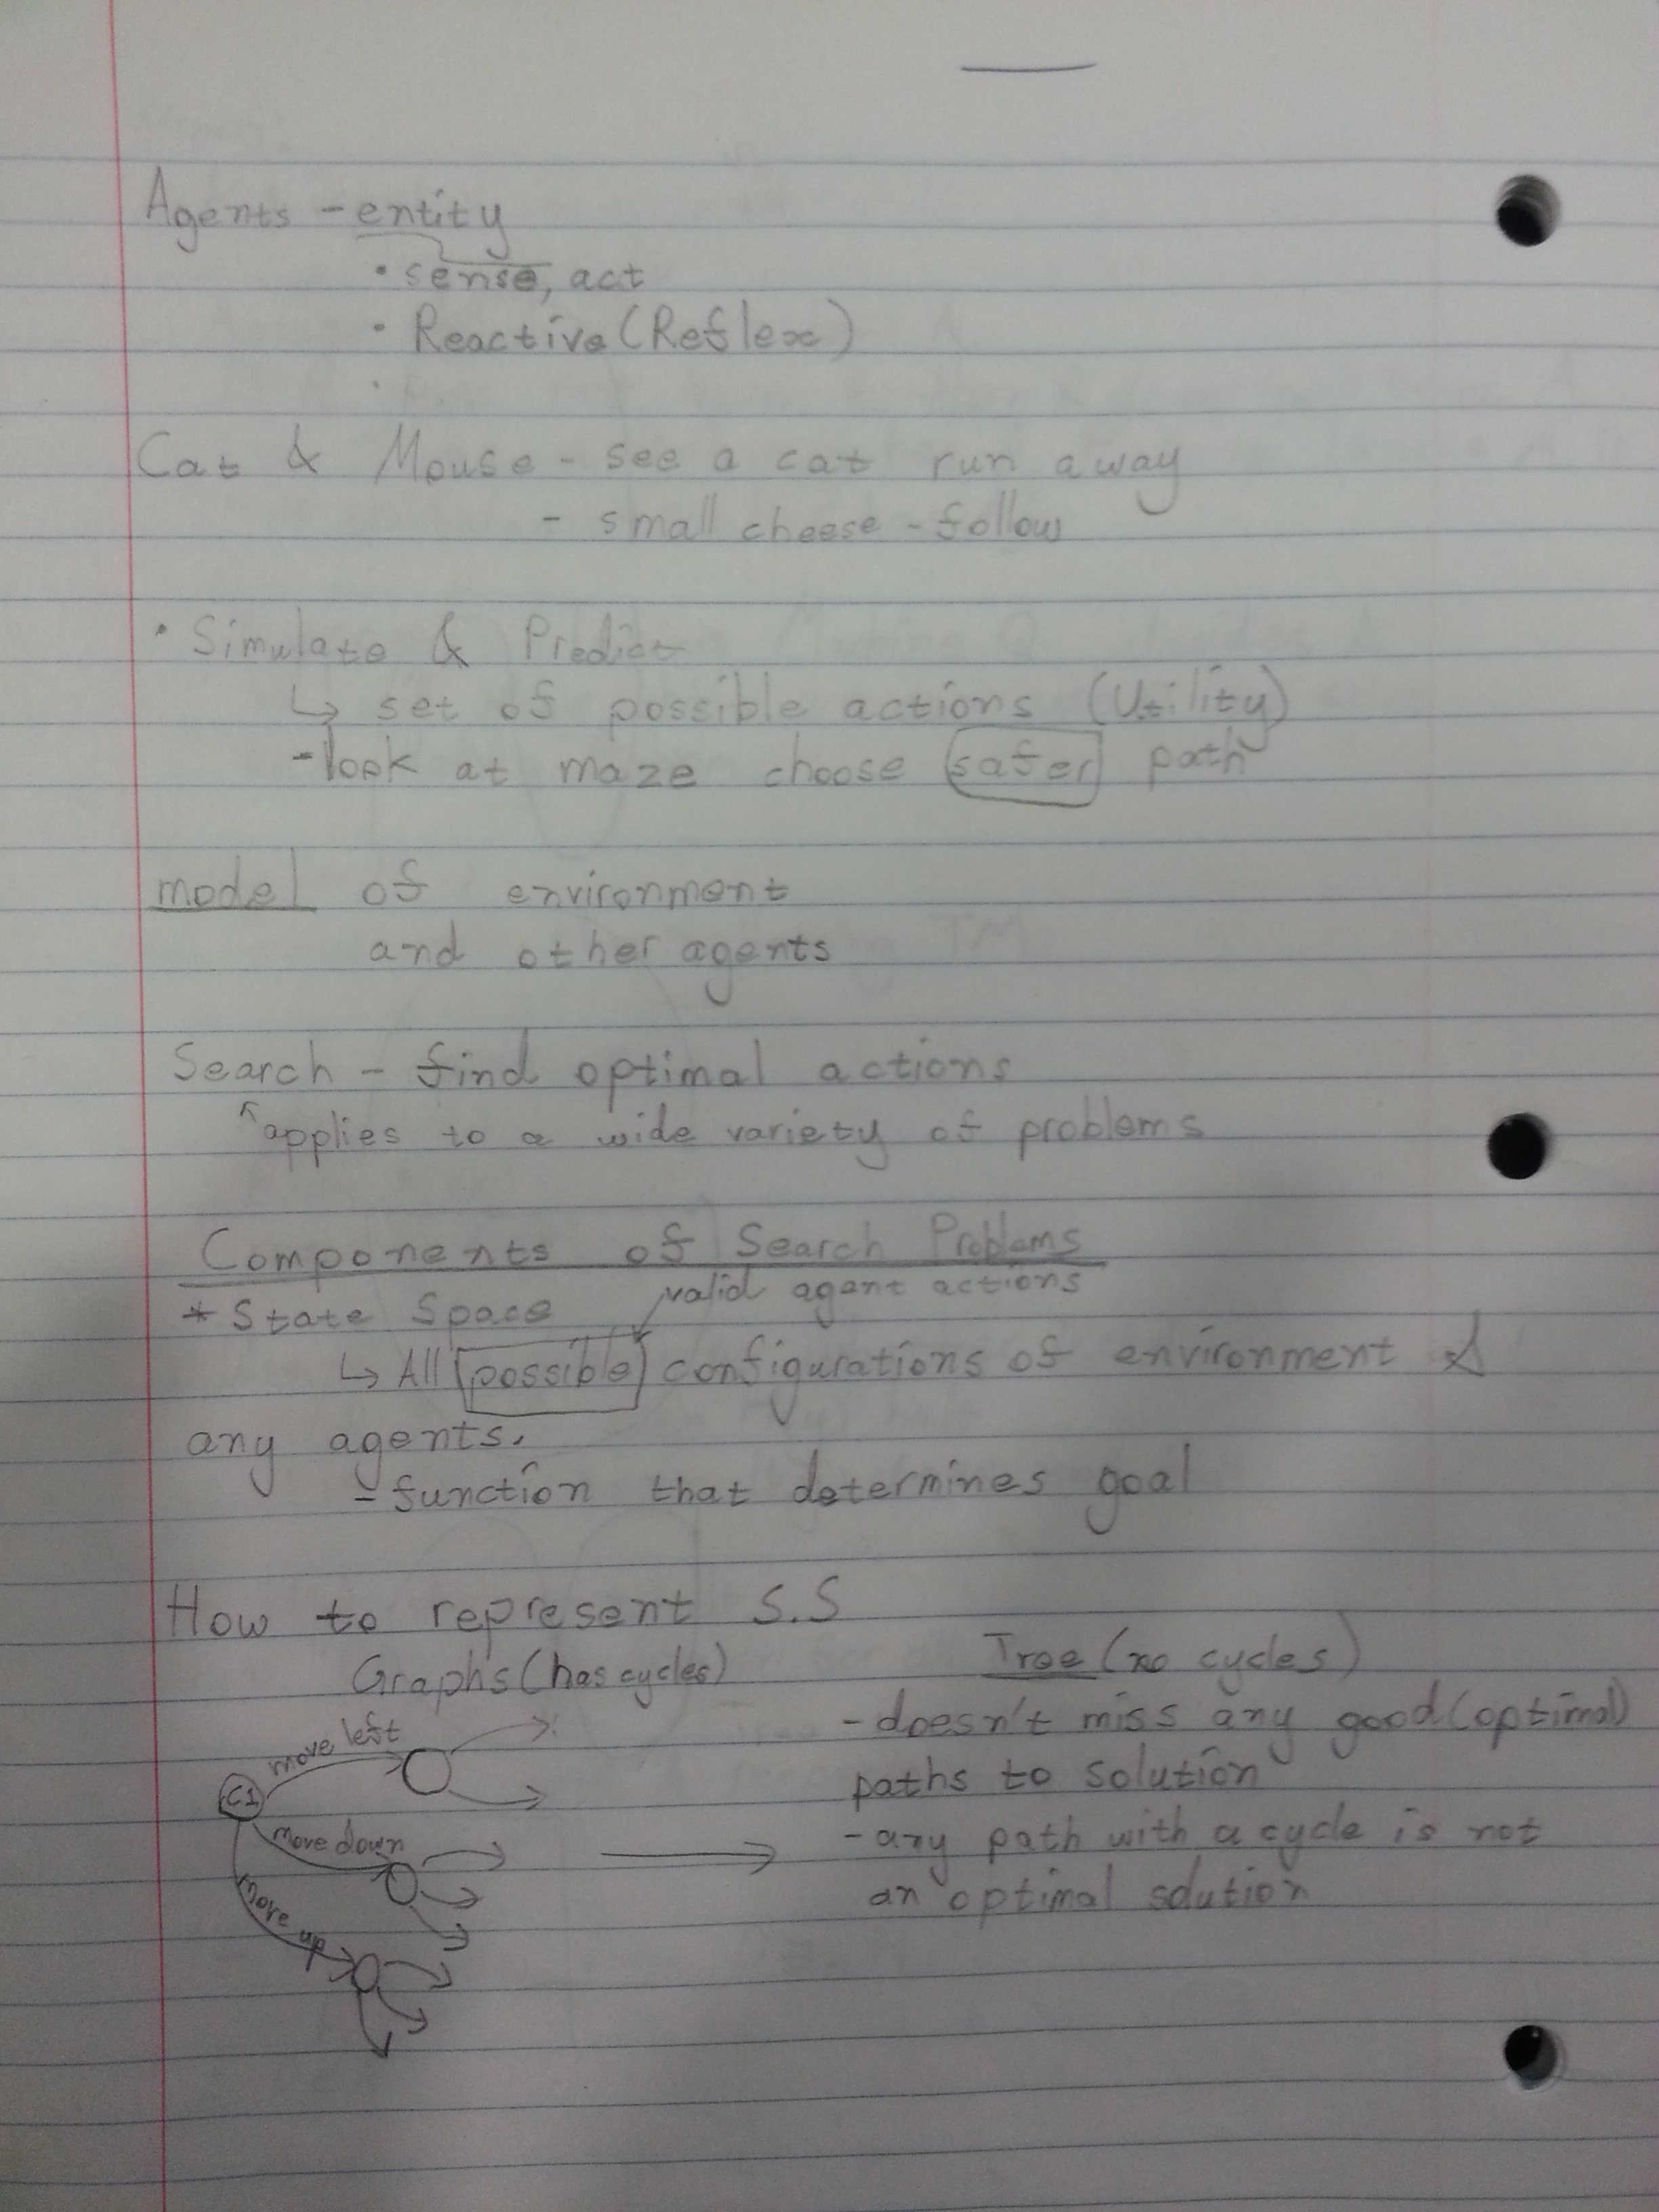 Agents - entity
• sense, act
• Reactive (Reflex)
Cat & Mouse - see a cat run away
- small cheese - follow
• Simulate & Predict
↳ set of possible actions (Utility)
- look at maze choose safer path
model of environment
and other agents
Search - find optimal actions
↖ applies to a wide variety of problems
Components of Search Problems
valid agent actions
* State Space
↳ All possible configurations of environment &
any agents.
- function that determines goal
How to represent S.S
Graphs (has cycles)
Tree (no cycles)
- doesn't miss any good (optimal)
paths to solution
- any path with a cycle is not
an optimal solution
C1
move left
move down
move up